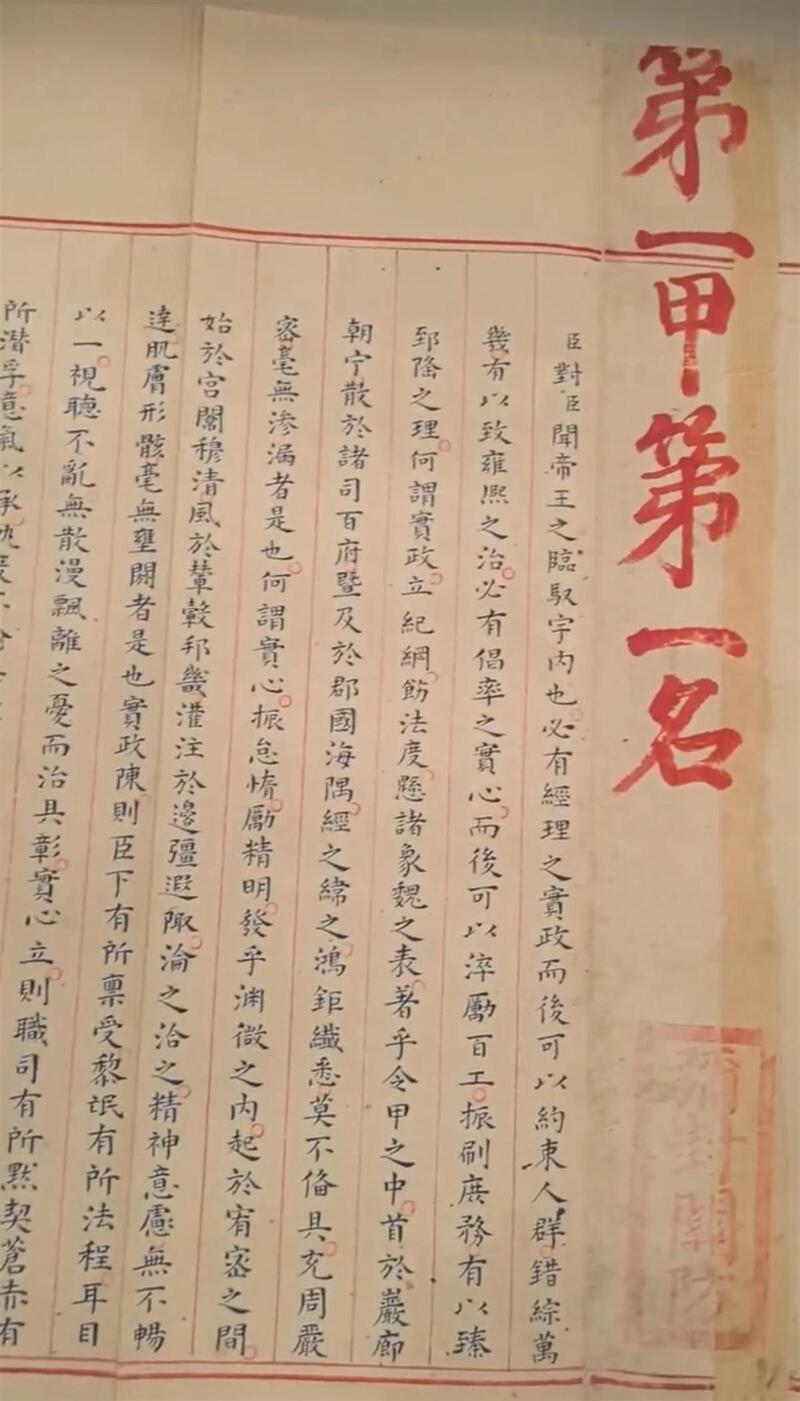 第一甲第一名
臣對臣聞帝王之臨馭宇内也必有經理之實政而後可以約束人群錯綜萬
幾有以致雍熙之治必有倡率之實心而後可以淬勵百工振刷庶務有以臻
郅隆之理何謂實政立紀綱飭法度懸諸象魏之表著乎令甲之中首於巖廊
朝宁散於諸司百府暨及於郡國海隅經之緯之鴻鉅纖悉莫不備具充周嚴
密毫無滲漏者是也何謂實心振怠惰勵精明發乎淵微之内起於宥密之間
始於宮闈穆清風於輦轂邦畿灌注於邊疆遐陬淪之洽之精神意慮無不暢
達肌膚形骸毫無壅閼者是也實政陳則臣下有所稟受黎氓有所法程耳目
以一視聽不亂無散漫飄離之憂而治具彰實心立則職司有所默契蒼赤有
所潛孚意氣以承
關防